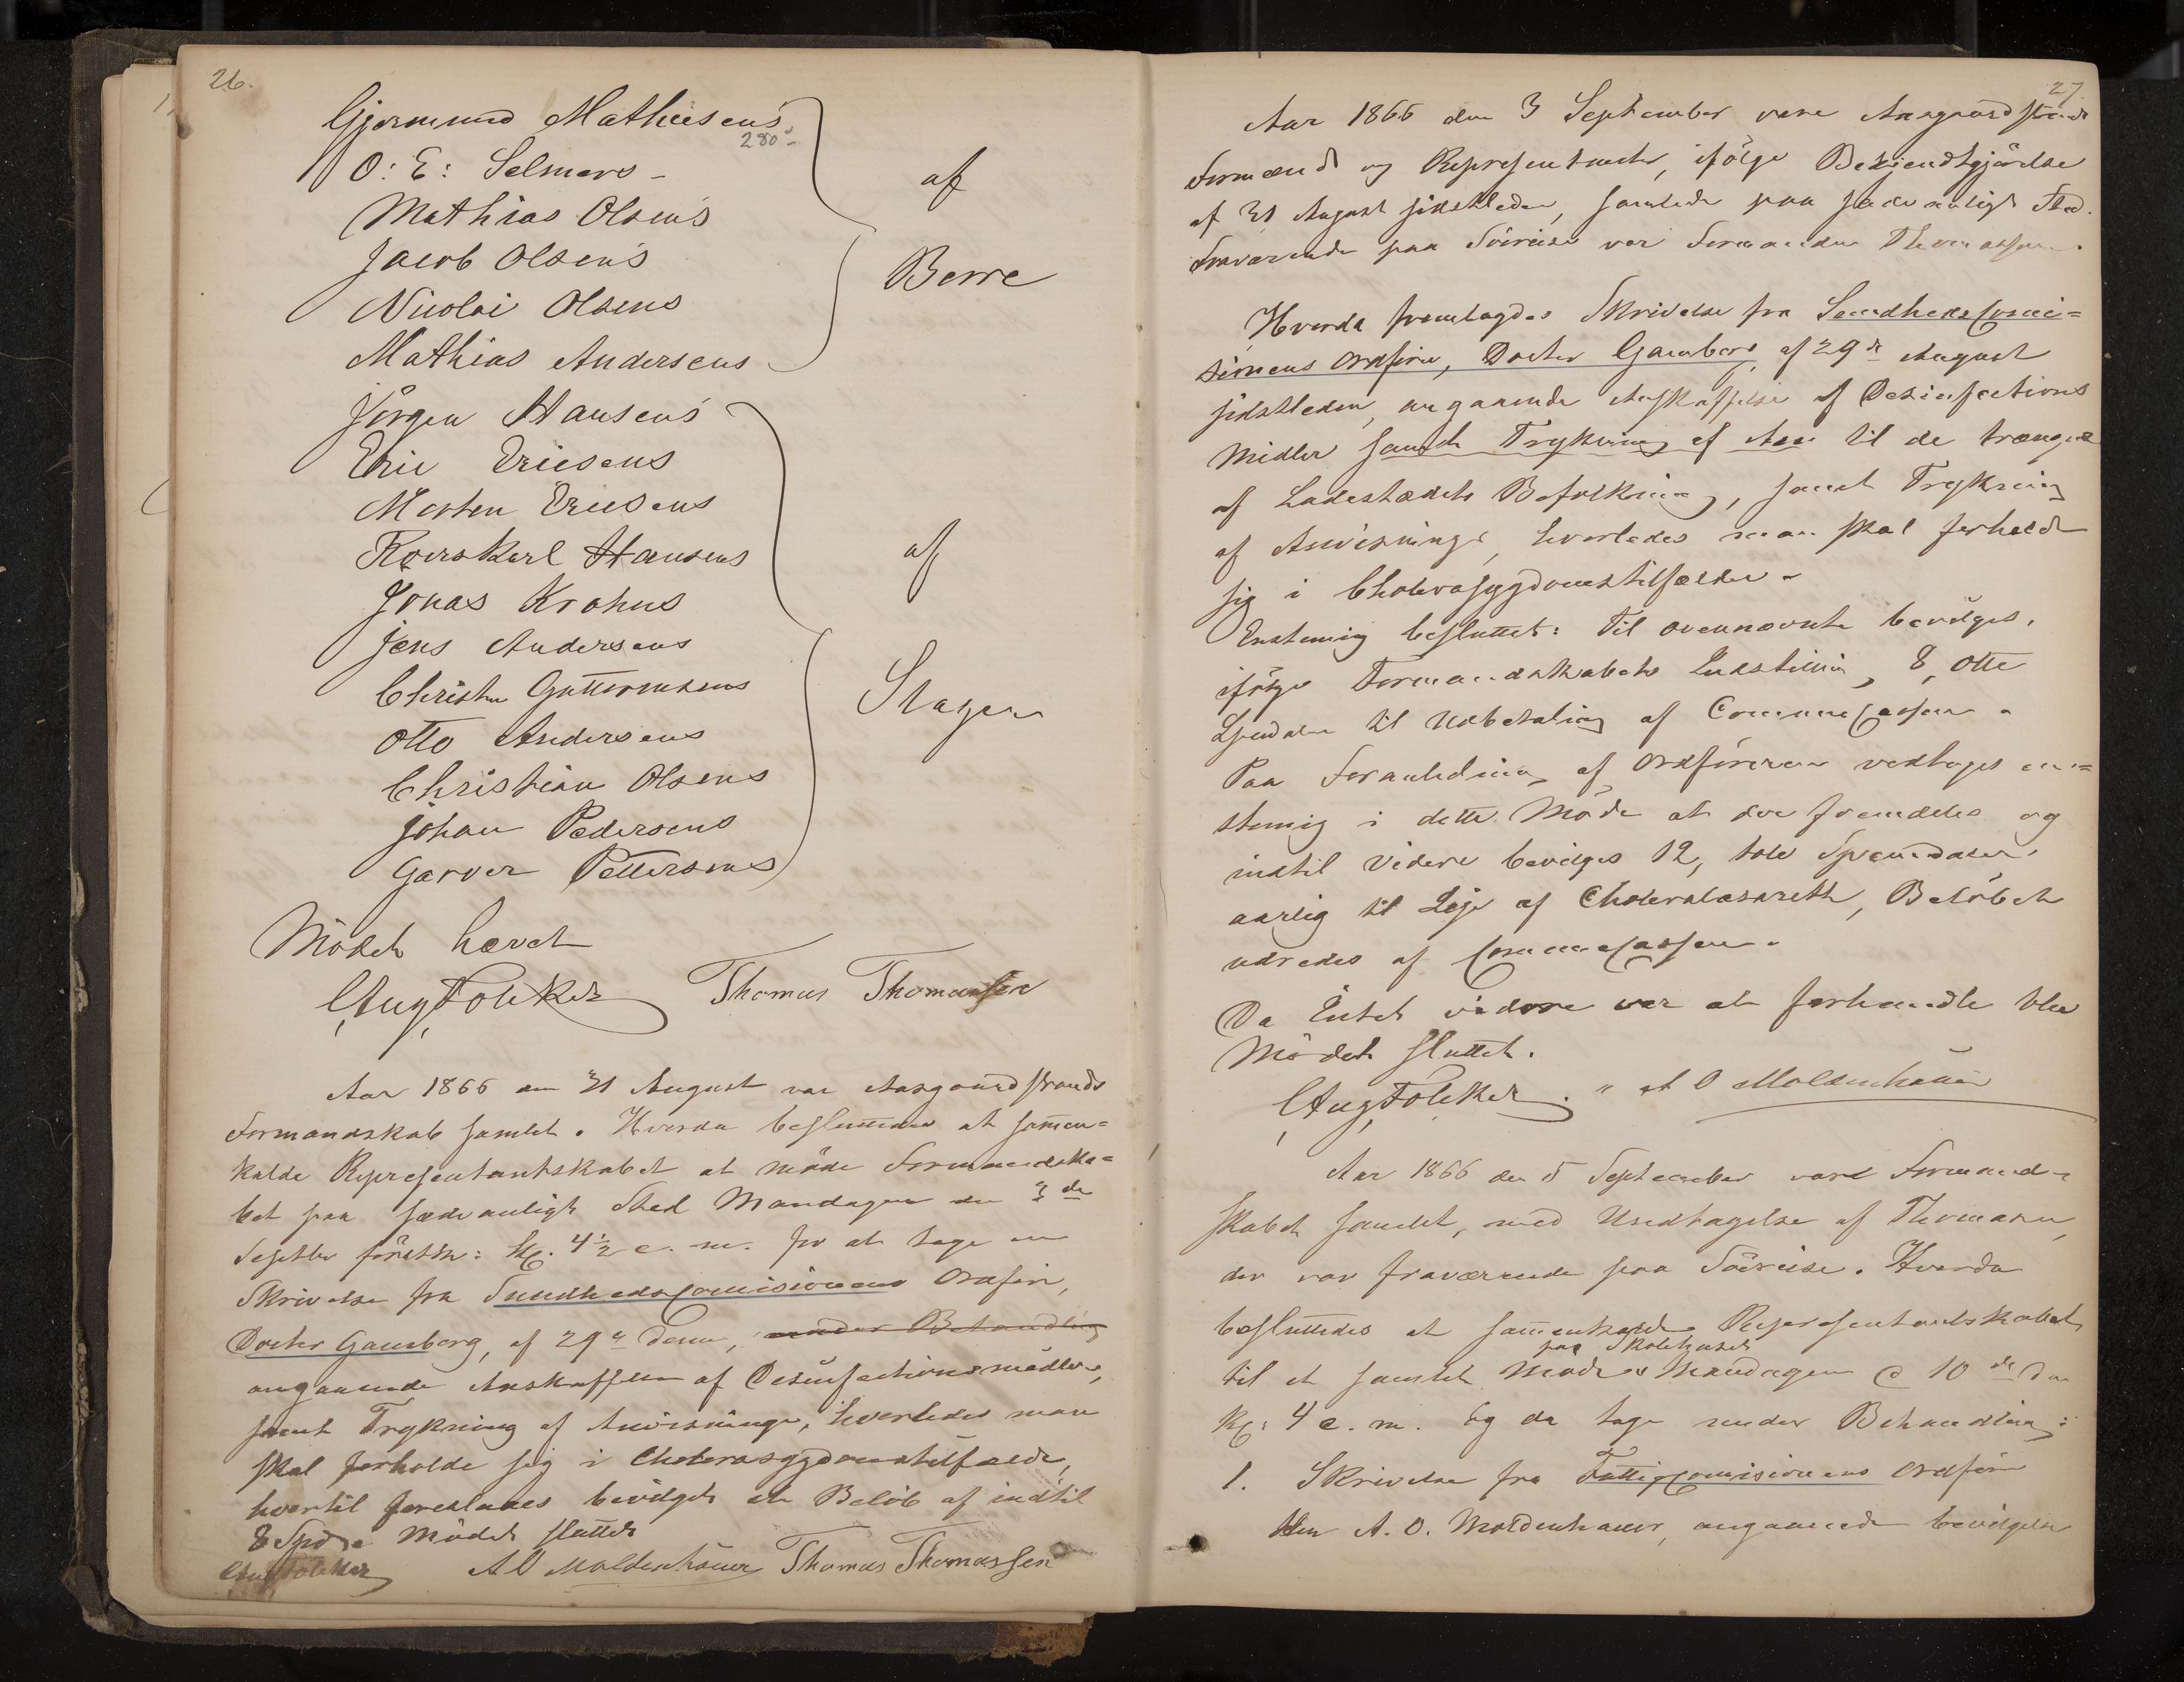 26.
Gjermund Mathisens
280
O: E: Selmers
Mathias Olsens
af
Jacob Olsens
Nicolai Olsens
Borre
Mathias Andersens
Jörgen Hansens
Eric Ericsens
Morten Ericsens
Hansens
af
Jonas Krohns
Jens Andersens
Guttormsens
Otto Andersens
Slagen
Christian Olsens
Johan Pedersens
Pettersens
Mödet hævet
CAugFoleker Thomas Thomassen
Aar 1866 den 31 August var Aasgaardstrands
Formandskab samlet. Hvorda besluttedes at sammen=
kalde Representantskabet at möde Formandska=
bet paa sædvanligt Sted Mandagen den 3de
Septbr förstk: Kl. 4½ e. m. for at tage en
Skrivelse fra Sundhedscomisionens Ordför,
Doctor Gamborg, af 29de denne, under Behandling
angaaende Anskaffelse af Desinfectionsmidler,
samt Trykning af Anvisninger, hvorledes man
skal forholde sig i Cholerasygdomstilfælde,
hvortil foreslaaes bevilget et Beløb af indtil
8 Spd. Mödet sluttet
CAugFoleker A O Moldenhauer Thomas Thomassen
27
Aar 1866 den 3 September vare Aasgaardstrands
Formænd og Representanter, ifölge Bekjendtgjörelse
af 31 August sidstleden, samlede paa sædvanligt Sted.
Fraværende paa Söireise var Formanden Thomassen.
Hvorda fremlagdes Skrivelse fra Sundhedscomi=
sionens Ordförer, Doctor Gamborg, af 29de August
sidstleden, angaaende Anskaffelse af Desinfections
Midler samt Trykning af Anv til de trængende
af Ladestædets Befolkning, samt Trykning
af Anvisninger, hvorledes man skal forholde
sig i Cholerasygdomstilfælde.
Enstemig besluttet: Til ovennævnte bevilges,
ifölge Formandskabets Indstilling, 8, otte
Spesidaler til Udbetaling af Communecassen.
Paa Foranledning af Ordföreren vedtoges en=
stemig i dette Möde at der fremdeles og
indtil Videre bevilges 12, tolv Speciedaler,
aarlig til Leje af Choleralazareth, Belöbet
udredes af Communecassen.
Da Intet videre var at forhandle blev
Mödet sluttet.
CAugFoleker. A O Moldenhauer
Aar 1866 den 5 September vare Formand-
skabet samlet, med Undtagelse af Thomassen,
der var fraværende paa Söireise. Hvorda
besluttedes at sammenkalde Representantskabet
paa Skolehuset
til et samlet Möde Mandagen d 10de Ds
Kl: 4 e. m. og da tage under Behandling:
1. Skrivelse fra Fattigcomisionens Ordförer
Herr A. O. Moldenhauer, angaaende bevilgelse